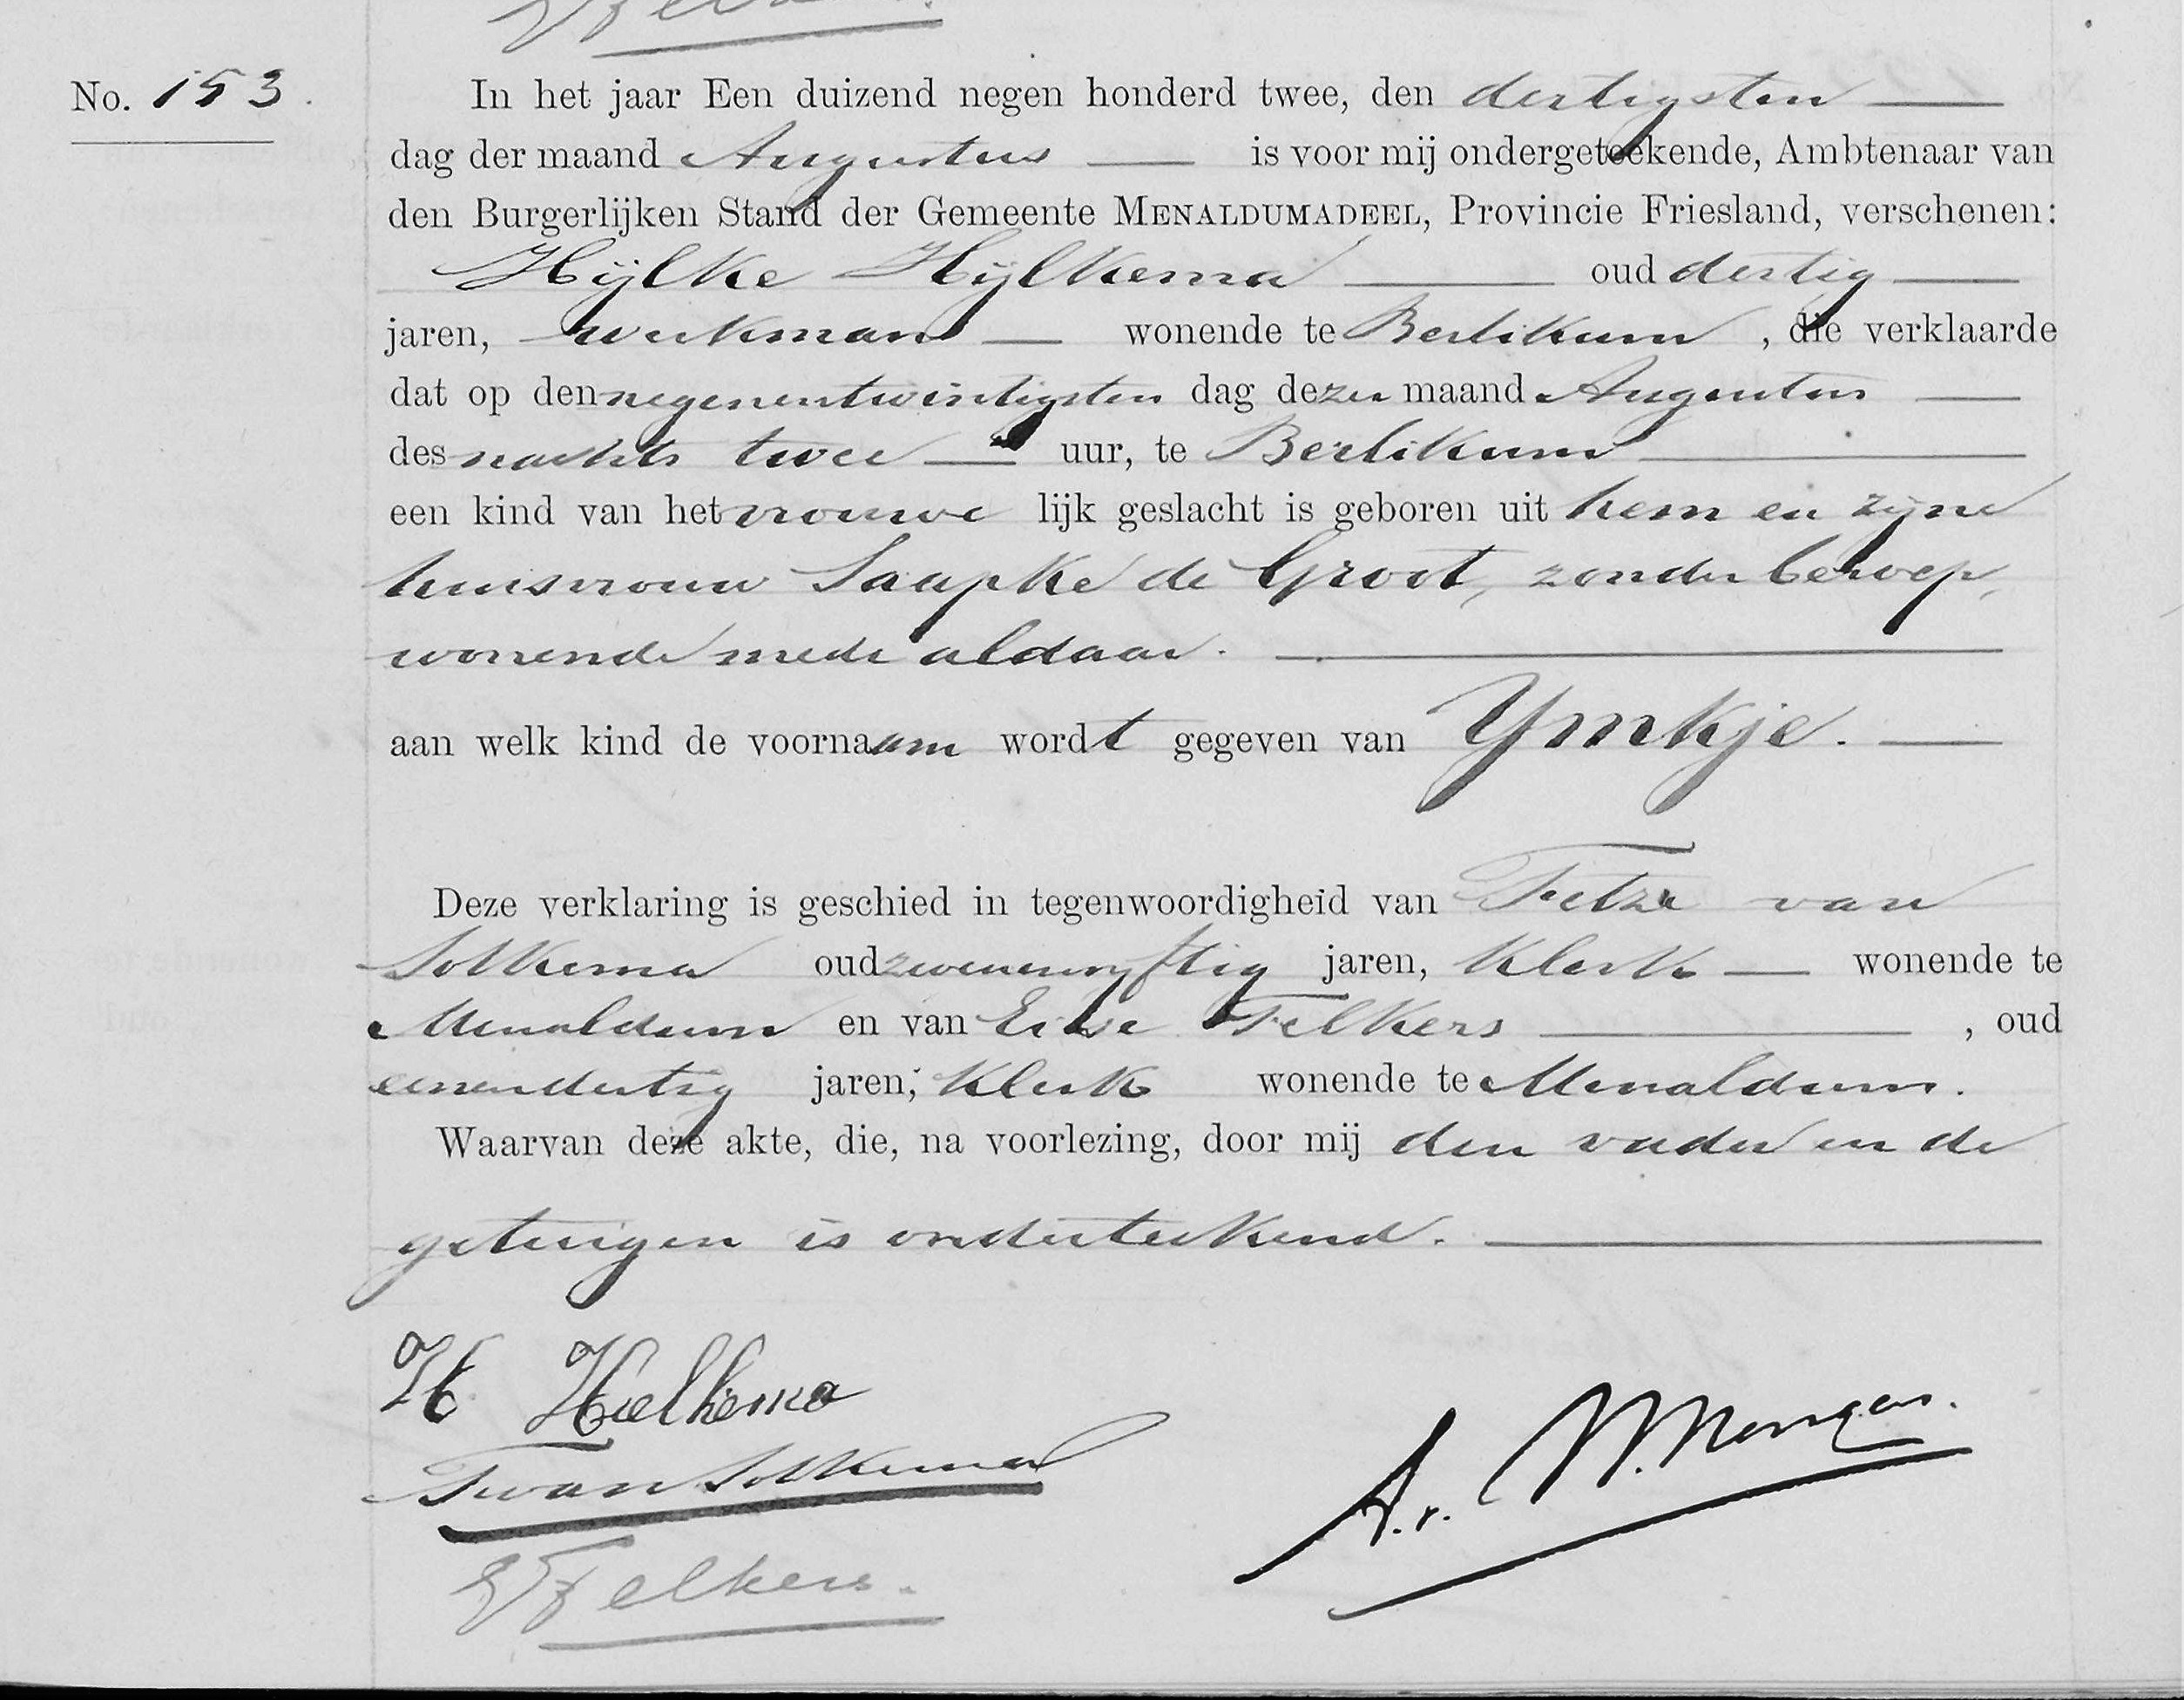 No. 153.
In het jaar Een duizend negen honderd twee, den dertigsten
dag der maand Augustus is voor mij ondergeteekende, Ambtenaar van
den Burgerlijken Stand der Gemeente MENALDUMADEEL, Provincie Friesland, verschenen:
Hijlke Hijlkema oud dertig
jaren, werkman wonende te Berlikum, die verklaarde
dat op den negenentwintigsten dag dezer maand Augustus
des nachts twee uur, te Berlikum
een kind van het vrouwelijk geslacht is geboren uit hem en zijne
huisvrouw Saapke de Groot, zonder beroep,
wonende mede aldaar.
aan welk kind de voornaam wordt gegeven van Ymkje.
Deze verklaring is geschied in tegenwoordigheid van Fetze van
Solkema oud zevenenvijftig jaren, klerk wonende te
Menaldum en van Felkers, oud
eenendertig jaren, klerk wonende te Menaldum.
Waarvan deze akte, die, na voorlezing, door mij den vader en de
getuigen is onderteekend.
H Hielkema
F van Solkema
E Felkers.